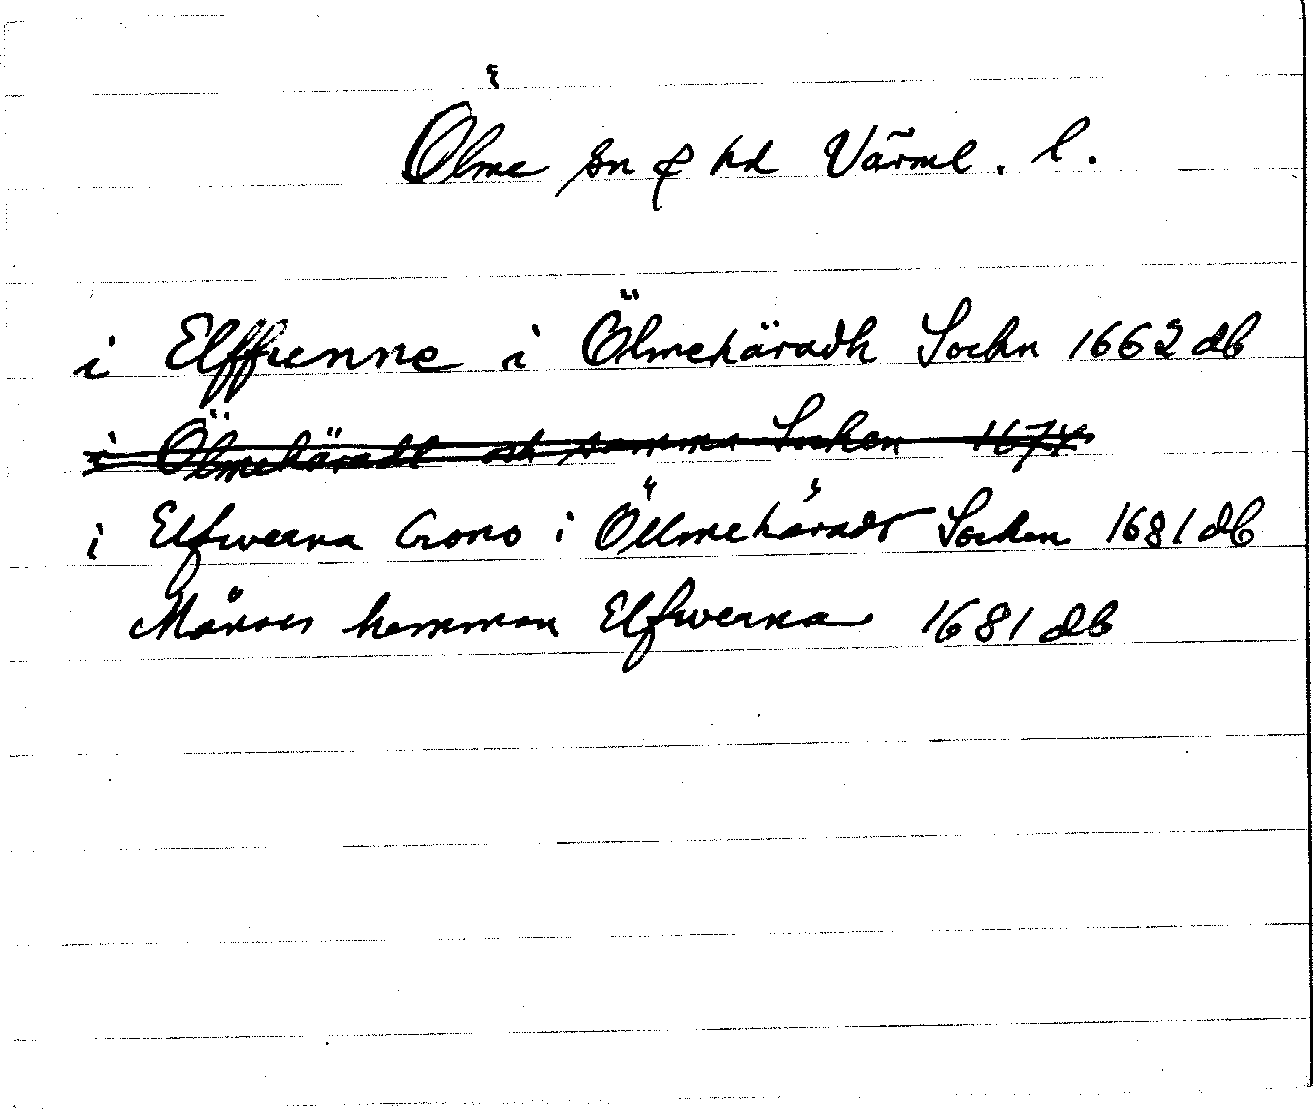 Ölme sn & hd Värml. l.
i Elffrenne i Ölmehäradh Sockn 1662 db
i Ölmehäradt och samma Socken 1674
i Elfwerna Crono i Öllmehäradt Socken 1681 db
hemman Elfwerna 1681 db